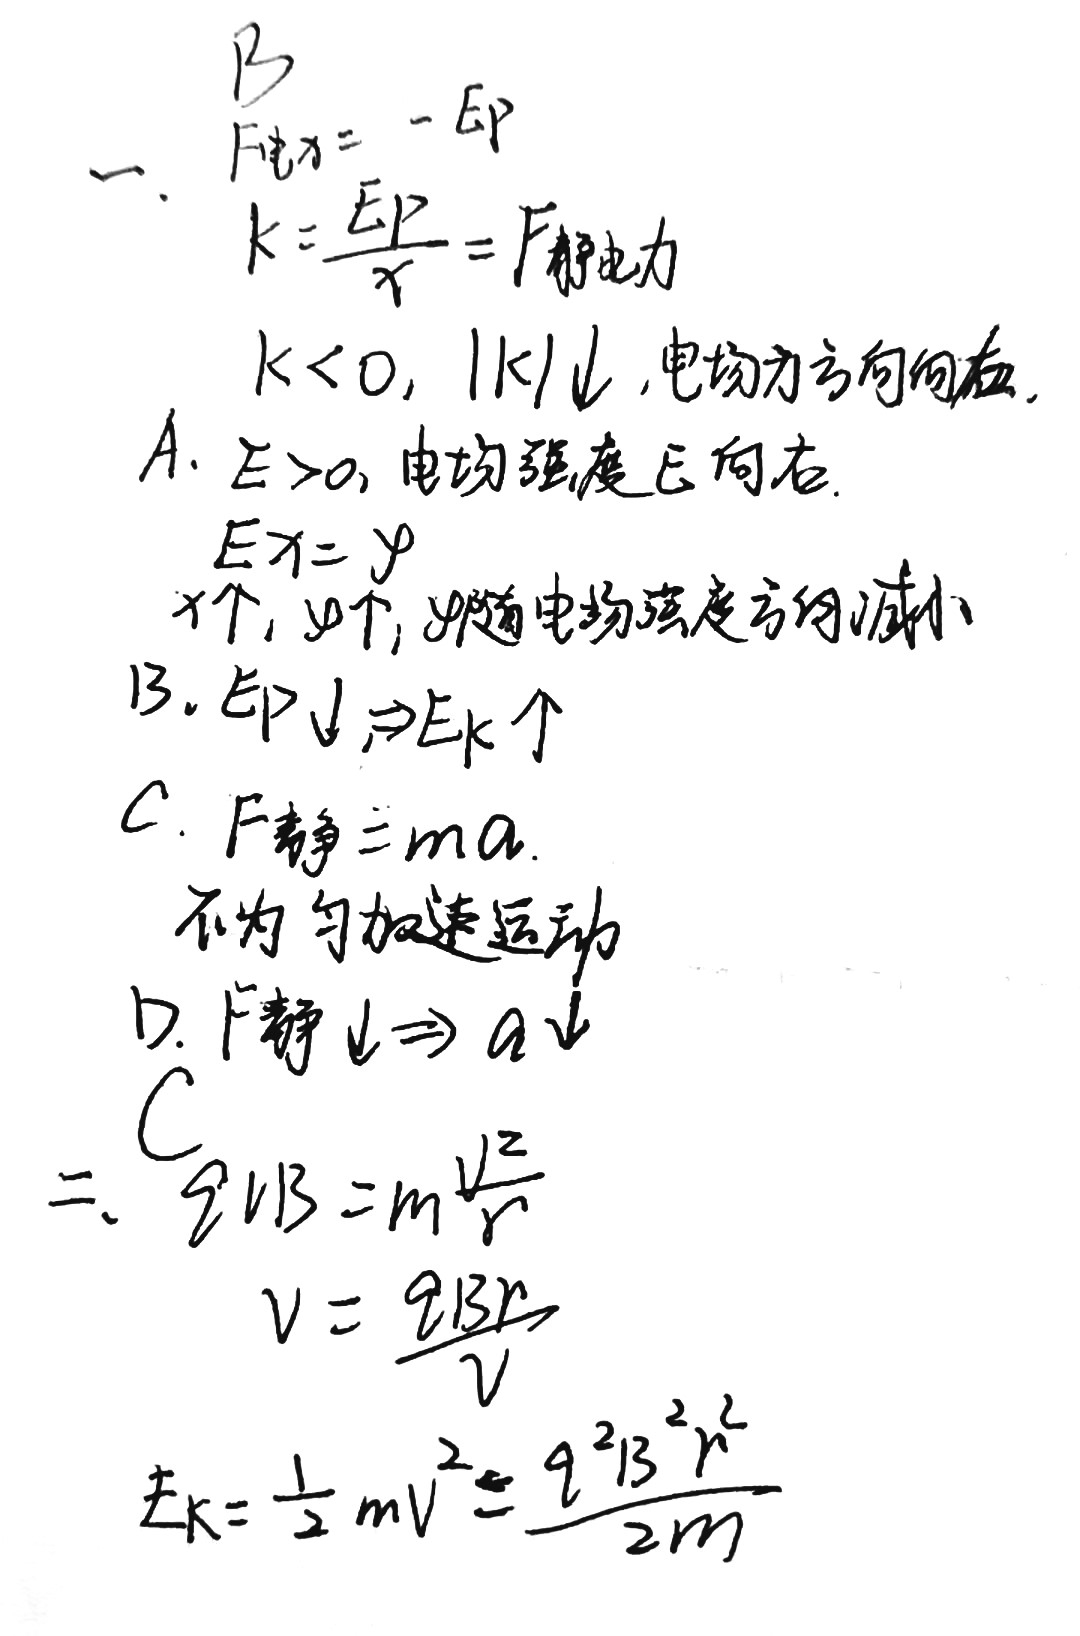 B
一. F电x = - Ep
k = Ep/x = F静电力
k < 0, |k|↓, 电场力方向向右.
A. E > 0, 电场强度E向右.
Ex = φ
x↑, φ↑, φ随电场强度方向减小
B. Ep↓, ⇒ Ek↑
C. F静 = ma.
不为匀加速运动
D. F静↓ ⇒ a↓
C
二、 qvB = m v²/r
v = qBr/v
Ek = 1/2 mv² = q²B²r²/2m